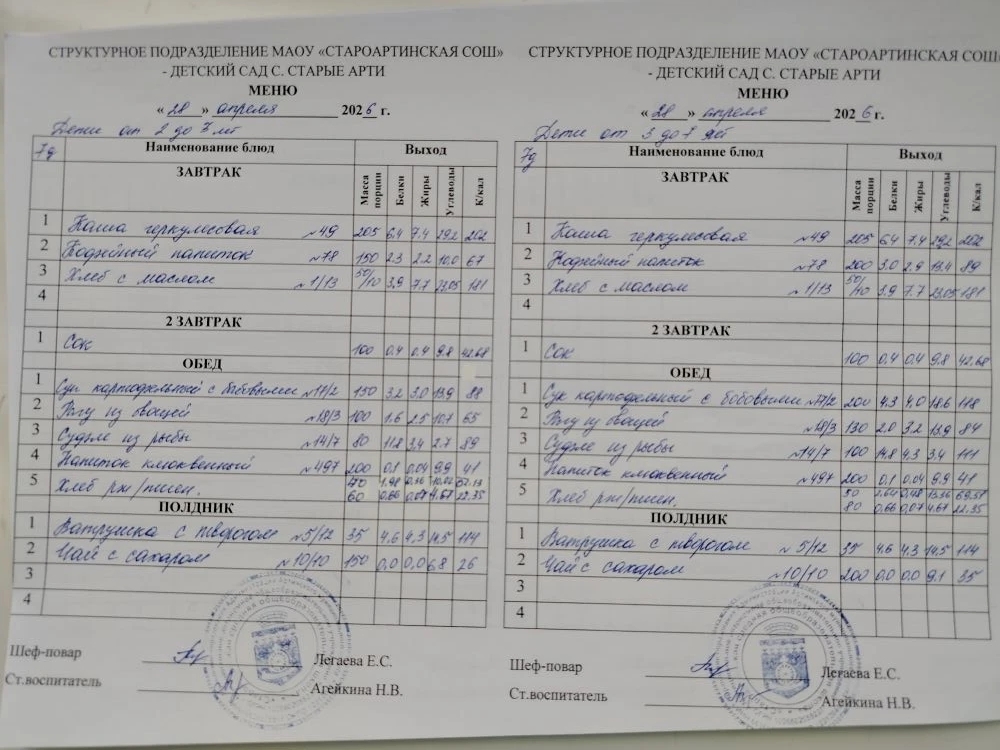 СТРУКТУРНОЕ ПОДРАЗДЕЛЕНИЕ МАОУ «СТАРОАРТИНСКАЯ СОШ»
- ДЕТСКИЙ САД С. СТАРЫЕ АРТИ
МЕНЮ
« 28 » апреля 2026 г.
Дети от 2 до 3 лет
7д Наименование блюд Выход
ЗАВТРАК Масса порции Белки Жиры Углеводы К/кал
1 Каша геркулесовая №49 205 6,4 7.4 29,2 202
2 Кофейный напиток №78 150 2.3 2.2 10,0 67
3 Хлеб с маслом №1/13 50/10 3,9 7.7 23,05 181
4
2 ЗАВТРАК
1 Сок 100 0.4 0.4 9.8 42.68
ОБЕД
1 Суп картофельный с бобовыми №17/2 150 3.2 3.0 13,9 88
2 Рагу из овощей №18/3 100 1.6 2.5 10,7 65
3 Суфле из рыбы №14/7 80 11.8 3,4 2.7 89
4 Напиток клюквенный №497 200 0,1 0.04 9.9 41
5 Хлеб рж/пшен. 40 1,98
60 0,66 0,07 4,61 22.35
ПОЛДНИК
1 Ватрушка с творогом №5/12 35 4.6 4.3 14,5 114
2 Чай с сахаром №10/10 150 0,0 0,0 6.8 26
3
4
Шеф-повар Легаева Е.С.
Ст.воспитатель Агейкина Н.В.
СТРУКТУРНОЕ ПОДРАЗДЕЛЕНИЕ МАОУ «СТАРОАРТИНСКАЯ СОШ
- ДЕТСКИЙ САД С. СТАРЫЕ АРТИ
МЕНЮ
« 28 » апреля 2026 г.
Дети от 3 до 7 лет
7д Наименование блюд Выход
ЗАВТРАК Масса порции Белки Жиры Углеводы К/кал
1 Каша геркулесовая №49 205 6,4 7.4 29,2 202
2 Кофейный напиток №78 200 3.0 2.9 13,4 89
3 Хлеб с маслом №1/13 50/10 3,9 7.7 23,05 181
4
2 ЗАВТРАК
1 Сок 100 0,4 0.4 9.8 42,68
ОБЕД
1 Суп картофельный с бобовыми №17/2 200 4.3 4,0 18.6 118
2 Рагу из овощей №18/3 130 2.0 3.2 13,9 84
3 Суфле из рыбы №14/7 100 14,8 4.3 3.4 111
4 Напиток клюквенный №497 200 0,1 0.04 9.9 41
5 Хлеб рж/пшен. 50 2,64 0,48 13,36 69.58
80 0,66 0,07 4.61 22.35
ПОЛДНИК
1 Ватрушка с творогом №5/12 35 4.6 4.3 14,5 114
2 Чай с сахаром №10/10 200 0,0 0.0 9.1 35
3
4
Шеф-повар Легаева Е.С.
Ст.воспитатель Агейкина Н.В.